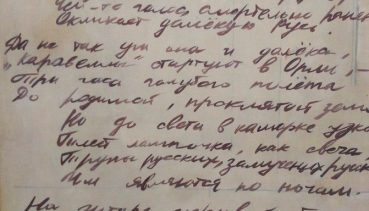 Чей-то голос смертельно ранен
Окликает далёкую Русь.
Да не так уж она и далёка,
"Каравеллы" стартуют в Орли,
Три часа голубого полёта
До родимой, проклятой земли
Но до света в каморке узкой
Тлеет лампочка, как свеча
Трупы русских, замученных
Им являются по ночам.
На